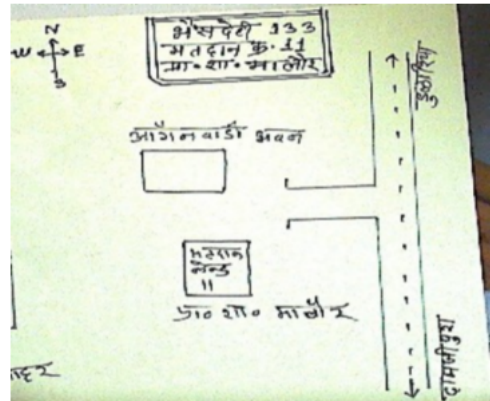 N
W E
S
भैंसदेही 133
मतदान क्र. 11
मा॰ शा॰ मालोर
आँगनवाडी भवन
मतदान
केन्द्र
11
प्रा॰ शा॰ मालोर
दामजीपुरा